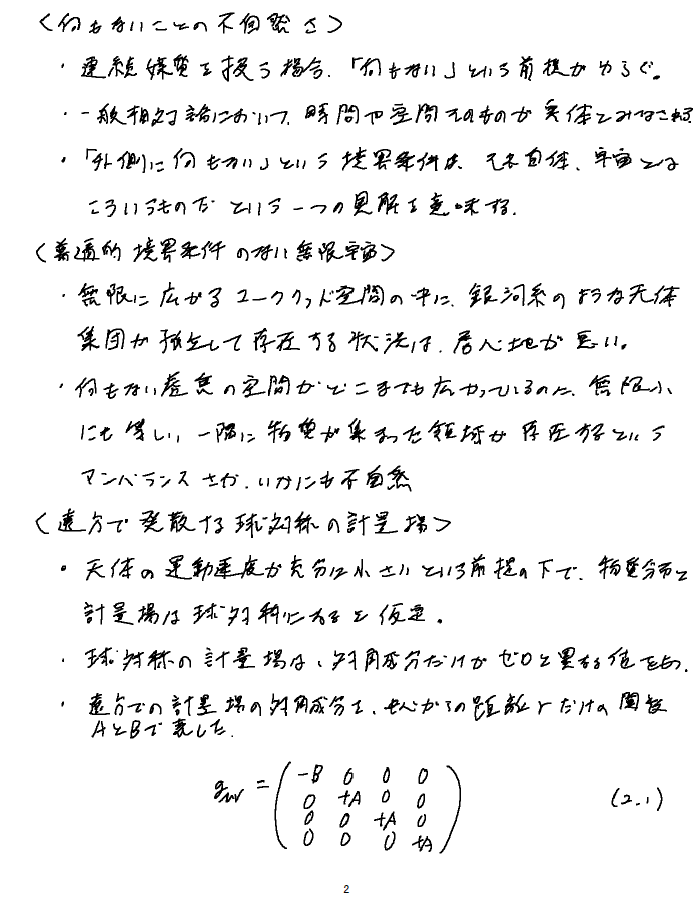 <何もないことの不自然さ>
・連続媒質を扱う場合、「何もない」という前提がゆらぐ。
・一般相対論において、時間や空間そのものが実体とみなされる
・「外側に何もない」という境界条件は、それ自体、宇宙とは
こういうものだという一つの見解を意味する.
<普遍的境界条件のない無限宇宙>
・無限に広がるユークリッド空間の中に、銀河系のような天体
集団が孤立して存在する状況は、居心地が悪い。
・何もない虚無の空間がどこまでも広がっているのに、無限小
にも等しい一隅に物質が集まった領域が存在するという
アンバランスさが、いかにも不自然
<遠方で発散する球対称の計量場>
・天体の運動速度が充分に小さいという前提の下で、物質分布と
計量場は球対称になると仮定。
・球対称の計量場は、対角成分だけがゼロと異なる値をもつ.
・遠方での計量場の対角成分を、中心からの距離rだけの関数
AとBで表した.
gμν = ( -B 0 0 0
0 +A 0 0
0 0 +A 0
0 0 0 +A ) (2.1)
2